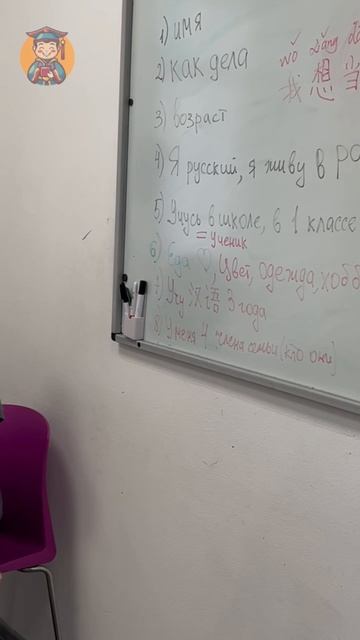 1) имя
2) как дела
wǒ xiǎng dā
我 想 当
3) возраст
4) Я русский, я живу в РО
5) Учусь в школе, в 1 классе
= ученик
6) Еда ♡, Цвет, одежда, хобб
7) Учу 汉语 3 года
8) У меня 4 члена семьи (кто они)